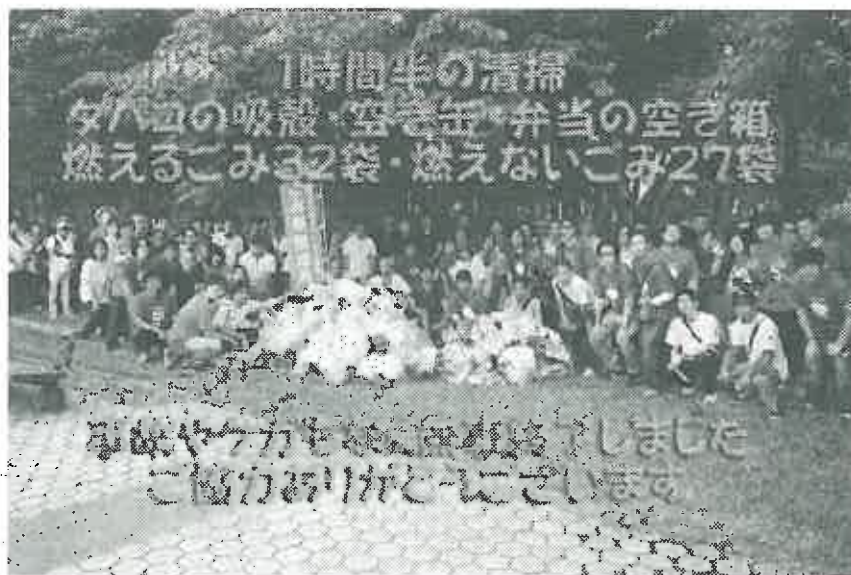 1時間半の清掃
タバコの吸殻・空き缶・弁当の空き箱
燃えるごみ32袋・燃えないごみ27袋
しました
ご協力ありがとうございます